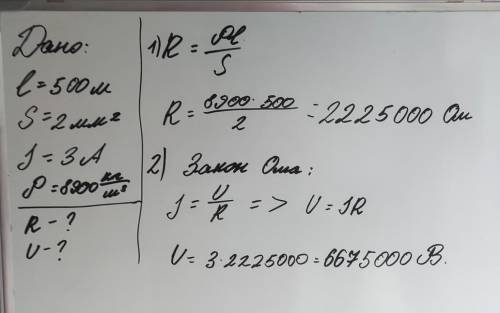 Дано:
l = 500 м
S = 2 мм²
I = 3 А
ρ = 8900 кг/м³
R - ?
U - ?
1) R = ρl/S
R = 8900·500/2 = 2225000 Ом
2) Закон Ома:
I = U/R => U = IR
U = 3·2225000 = 6675000 В.